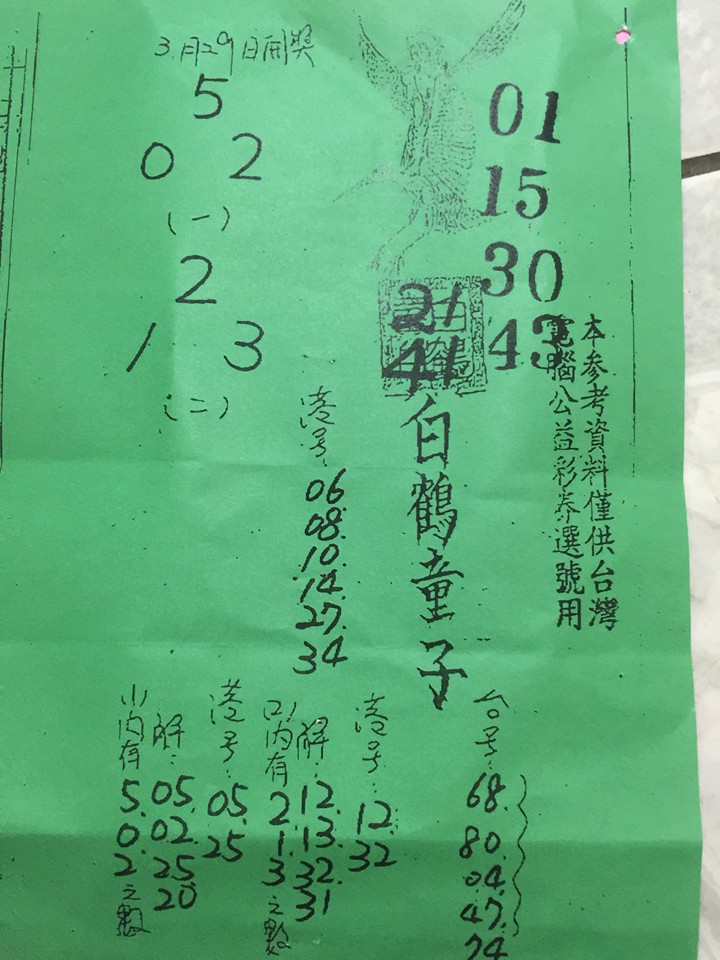 3月29日開獎
5
0 2
(一)
2
1 3
(二)
01
15
30
43
21
41
白鶴
白鶴童子
本参考資料僅供台灣
電腦公益彩券選號用
港号:
06.
08.
10.
14.
27.
34
台号:
68.
80.
04.
47.
74
港号:
12.
32
(2)
解:12.
13.
32.
31
内有2.
1.
3之數
港号:
05.
25
(1)
解:05.
02.
25.
20
内有5.
0.
2之數